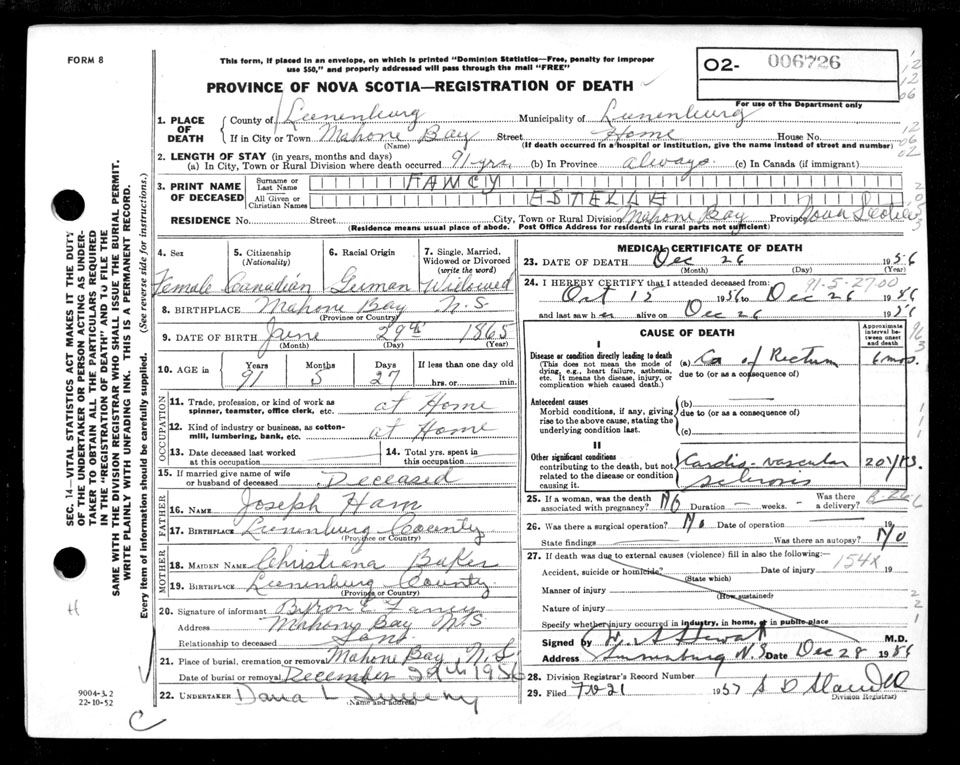 FORM 8
This form, if placed in an envelope, on which is printed "Dominion Statistics—Free, penalty for improper
use $50," and properly addressed will pass through the mail "FREE"
O2- 006726
PROVINCE OF NOVA SCOTIA—REGISTRATION OF DEATH
For use of the Department only
1. PLACE OF DEATH
County of Lunenburg Municipality of Lunenburg
If in City or Town Mahone Bay Street Home House No.
(Name) (If death occurred in a hospital or institution, give the name instead of street and number)
2. LENGTH OF STAY (in years, months and days)
(a) In City, Town or Rural Division where death occurred 91 yrs. (b) In Province always. (c) In Canada (if immigrant)
3. PRINT NAME OF DECEASED
Surname or Last Name FANCY
All Given or Christian Names ESTELLE
RESIDENCE No. Street City, Town or Rural Division Mahone Bay Province Nova Scotia
(Residence means usual place of abode. Post Office Address for residents in rural parts not sufficient)
4. Sex
Female
5. Citizenship
(Nationality)
Canadian
6. Racial Origin
German
7. Single, Married, Widowed or Divorced
(write the word)
Widowed
8. BIRTHPLACE Mahone Bay N.S.
(Province or Country)
9. DATE OF BIRTH June 29th 1865
(Month) (Day) (Year)
10. AGE in Years Months Days If less than one day old
91 5 27 hrs. or min.
OCCUPATION
11. Trade, profession, or kind of work as
spinner, teamster, office clerk, etc. at Home
12. Kind of industry or business, as cotton-
mill, lumbering, bank, etc. at Home
13. Date deceased last worked
at this occupation
14. Total yrs. spent in
this occupation
15. If married give name of wife
or husband of deceased Deceased
FATHER
16. NAME Joseph Ham
17. BIRTHPLACE Lunenburg County
(Province or Country)
MOTHER
18. MAIDEN NAME Christiana Baker
19. BIRTHPLACE Lunenburg County
(Province or Country)
20. Signature of informant Byron E Fancy
Address Mahone Bay N.S
Relationship to deceased Son
21. Place of burial, cremation or removal Mahone Bay N.S
Date of burial or removal December 29th 1956
22. UNDERTAKER Dana L
(Name and address)
MEDICAL CERTIFICATE OF DEATH
23. DATE OF DEATH Dec 26 1956
(Month) (Day) (Year)
24. I HEREBY CERTIFY that I attended deceased from: 91-5-2700
Oct 15 1956 to Dec 26 1956
and last saw her alive on Dec 26 1956
CAUSE OF DEATH
Approximate interval between onset and death
I
Disease or condition directly leading to death
(This does not mean the mode of
dying, e.g., heart failure, asthenia,
etc. It means the disease, injury, or
complication which caused death.)
(a) Ca of Rectum 6 mos.
due to (or as a consequence of)
Antecedent causes
Morbid conditions, if any, giving
rise to the above cause, stating the
underlying condition last.
(b)
due to (or as a consequence of)
(c)
II
Other significant conditions
contributing to the death, but not
related to the disease or condition
causing it.
Cardio-vascular sclerosis 20 yrs.
25. If a woman, was the death
associated with pregnancy? No Duration weeks. Was there a delivery?
26. Was there a surgical operation? No Date of operation 19
State findings Was there an autopsy? No
27. If death was due to external causes (violence) fill in also the following:—
Accident, suicide or homicide? Date of injury 154X 19
(State which)
Manner of injury
(How sustained)
Nature of injury
Specify whether injury occurred in industry, in home, or in public place
Signed by W. A Stewart M.D.
Address Lunenburg N.S Date Dec 28 1956
28. Division Registrar's Record Number
29. Filed 1957
Division Registrar)
SEC. 14—VITAL STATISTICS ACT MAKES IT THE DUTY
OF THE UNDERTAKER OR PERSON ACTING AS UNDER-
TAKER TO OBTAIN ALL THE PARTICULARS REQUIRED
IN THE "REGISTRATION OF DEATH" AND TO FILE THE
SAME WITH THE DIVISION REGISTRAR WHO SHALL ISSUE THE BURIAL PERMIT.
WRITE PLAINLY WITH UNFADING INK. THIS IS A PERMANENT RECORD.
Every item of information should be carefully supplied. (See reverse side for instructions.)
H
9004-3.2
22-10-52
C